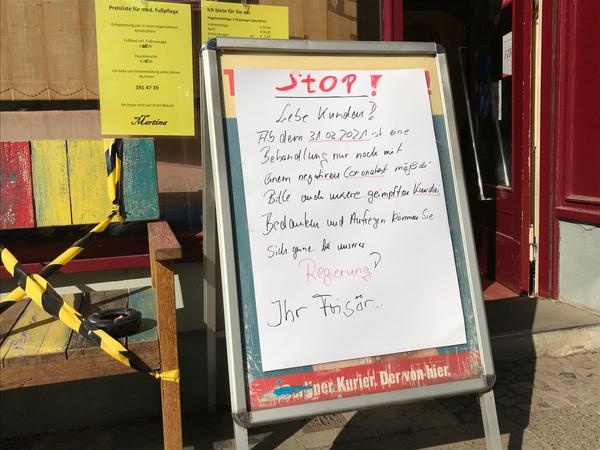 Preisliste für med. Fußpflege
Entspannung pur in einer angenehmen
Atmosphäre
Fußbad inkl. Fußmassage
Hausbesuche
Ich bitte um Voranmeldung unter dieser
Nummer:
391 47 39
Ich freue mich auf Ihren Besuch
Martina
Ich biete für Sie an:
STOP!
Liebe Kunden!
Ab dem 31.03.2021 ist eine
Behandlung nur noch mit
einem negativen Coronatest möglich!
Bitte auch unsere geimpften Kunden
Bedanken und Aufregen können Sie
sich gerne bei unserer
Regierung!
Ihr Frisör...
liner Kurier. Der von hier.